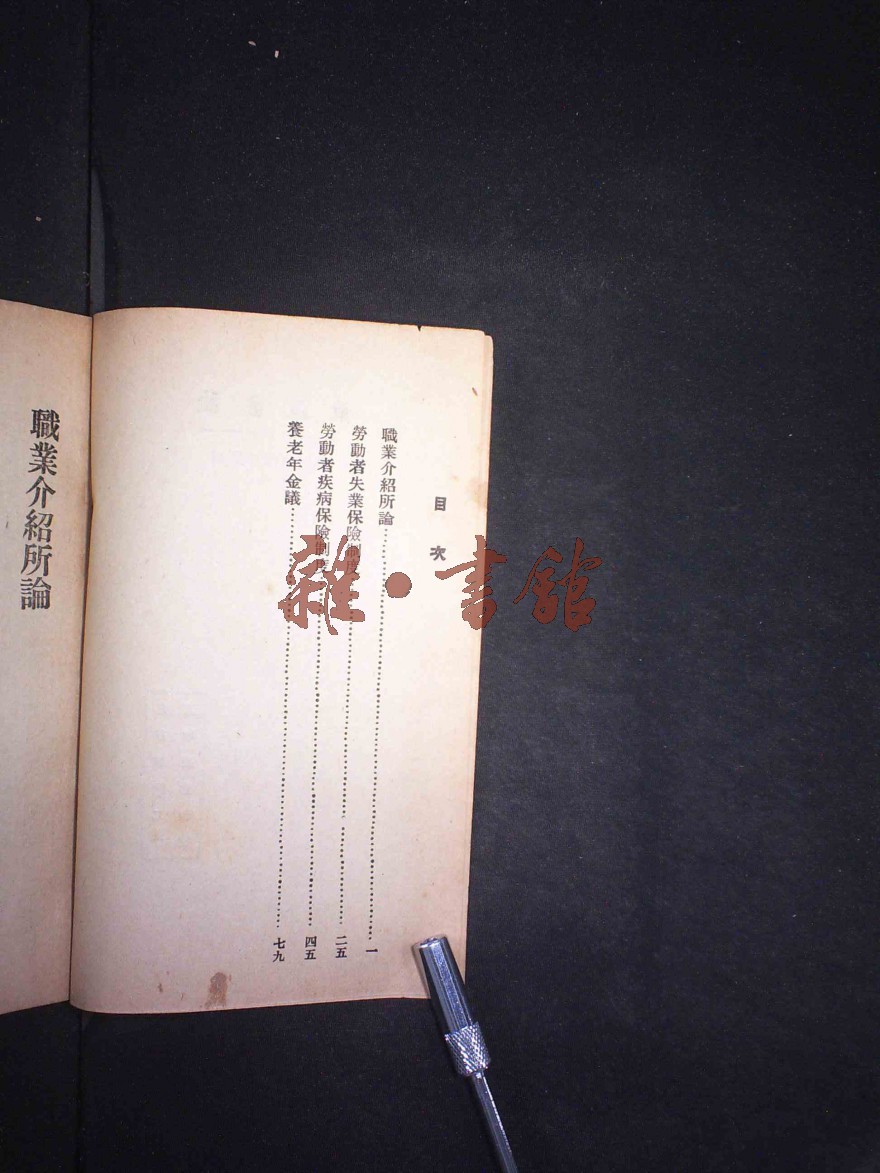 目次
職業介紹所論……一
勞動者失業保險制度……二五
勞動者疾病保險制度……四五
養老年金議……七九
職業介紹所論
雜·書館